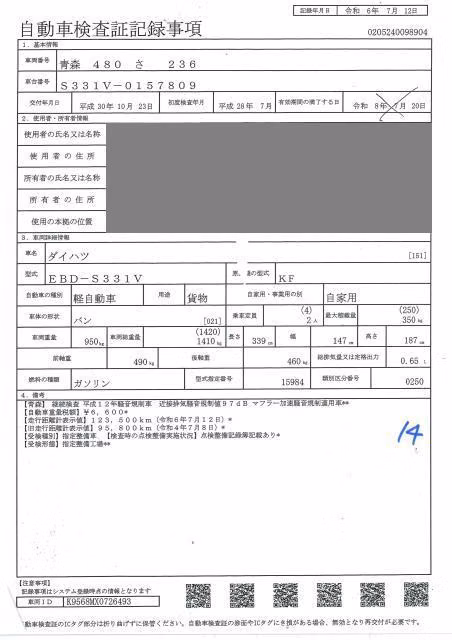 記録年月日 令和 6年 7月 12日
自動車検査証記録事項
0205240098904
1. 基本情報
車両番号 青森 480 さ 236
車台番号 S331V-0157809
交付年月日 平成 30年 10月 23日 初度検査年月 平成 26年 7月 有効期間の満了する日 令和 8年 7月 20日
2. 使用者・所有者情報
使用者の氏名又は名称
使用者の住所
所有者の氏名又は名称
所有者の住所
使用の本拠の位置
3. 車両詳細情報
車名 ダイハツ [151]
型式 EBD-S331V 原 の型式 KF
自動車の種別 軽自動車 用途 貨物 自家用・事業用の別 自家用
車体の形状 バン [021] 乗車定員 (4) 2人 最大積載量 (250) 350kg
車両重量 950kg 車両総重量 (1420) 1410kg 長さ 339cm 幅 147cm 高さ 187cm
前軸重 490kg 後軸重 460kg 総排気量又は定格出力 0.65 l
燃料の種類 ガソリン 型式指定番号 15984 類別区分番号 0250
4. 備考
[青森] 継続検査 平成12年騒音規制車 近接排気騒音規制値97dB マフラー加速騒音規制適用車**
[自動車重量税額] ¥6,600*
[走行距離計表示値] 123,500km (令和6年7月12日)*
[旧走行距離計表示値] 95,800km (令和4年7月8日)*
[受検種別] 指定整備車 [検査時の点検整備実施状況] 点検整備記録簿記載あり*
[受検形態] 指定整備工場**
14
[注意事項]
記録事項はシステム登録時点の情報となります
車両ID K9568MX0726493
自動車検査証のICタグ部分は折り曲げずに保管ください。自動車検査証の券面やICタグにき損がある場合、無効となり再交付が必要です。